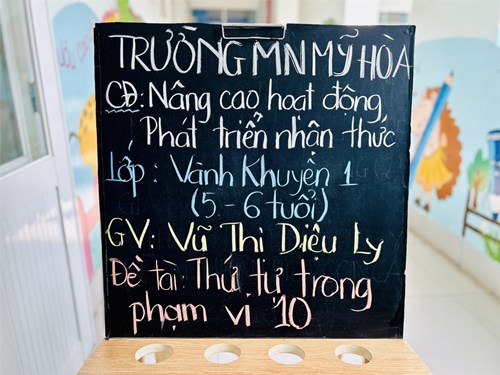 TRƯỜNG MN MỸ HÒA
CĐ: Nâng cao hoạt động
Phát triển nhận thức
Lớp: Vành Khuyên 1
(5 - 6 tuổi)
GV: Vũ Thi Diệu Ly
Đề tài: Thứ tự trong
phạm vi 10